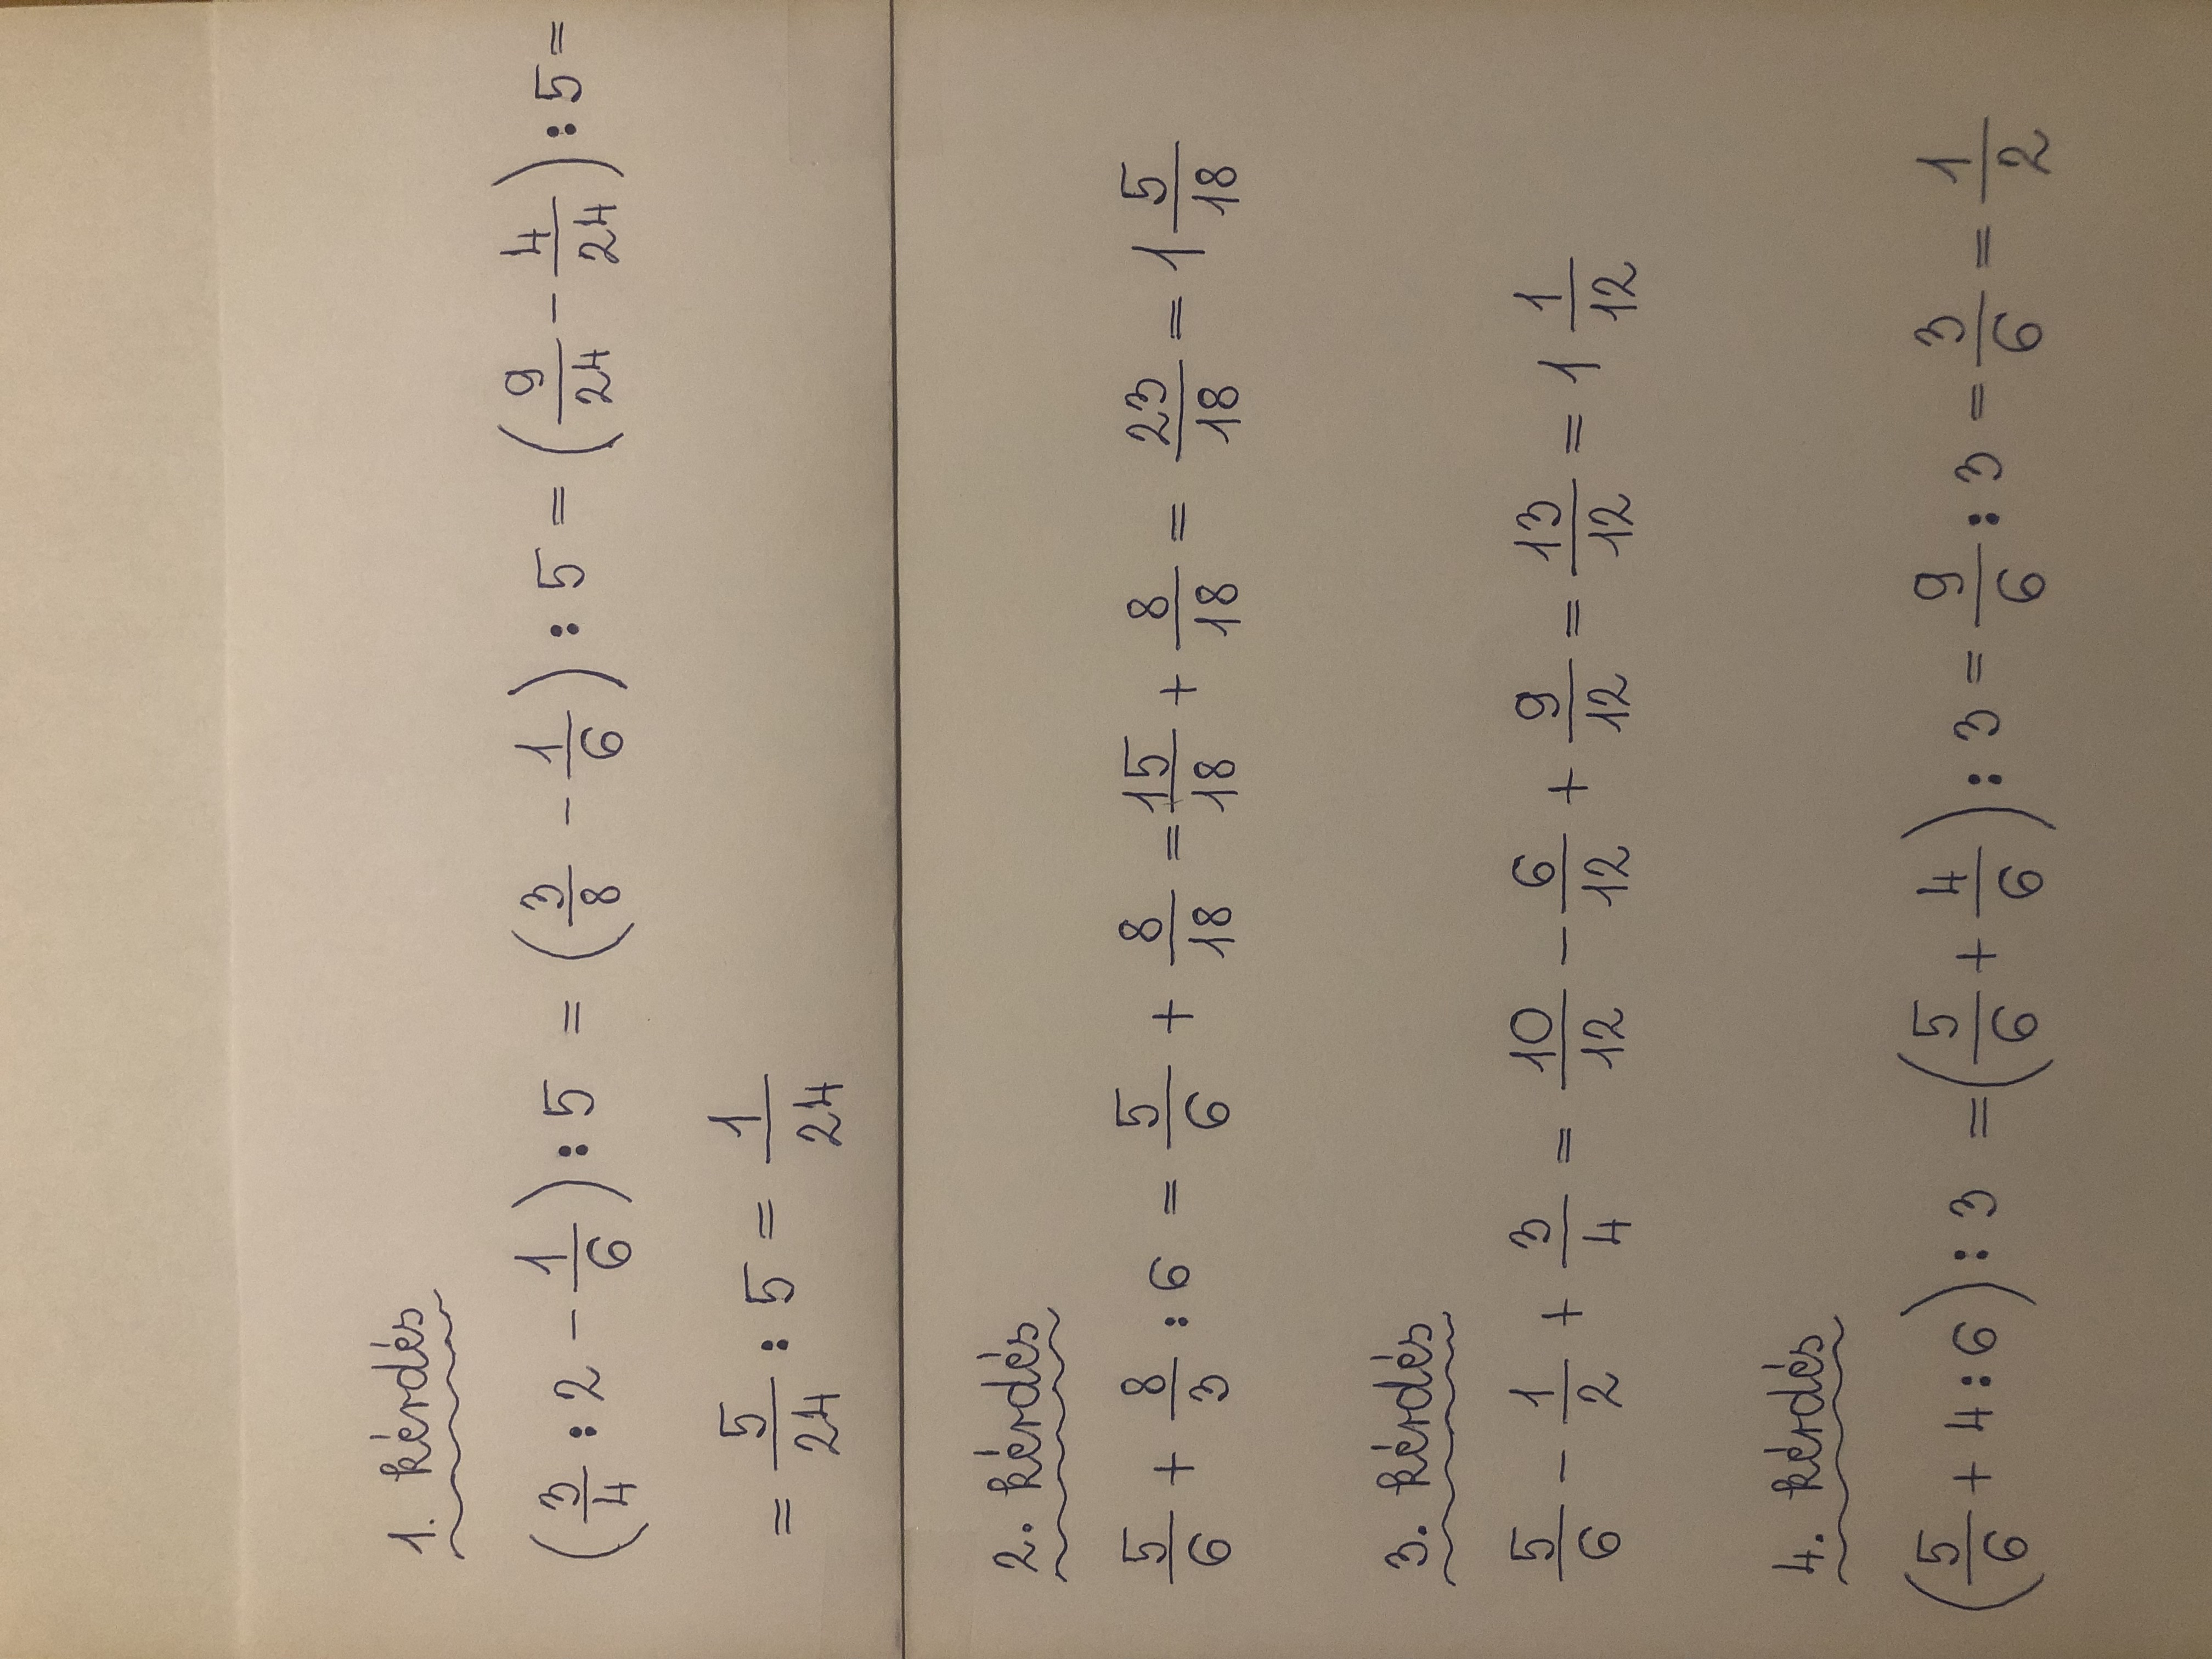 1. kérdés
(3/4 : 2 - 1/6) : 5 = (3/8 - 1/6) : 5 = (9/24 - 4/24) : 5 =
= 5/24 : 5 = 1/24
2. kérdés
5/6 + 8/3 : 6 = 5/6 + 8/18 = 15/18 + 8/18 = 23/18 = 1 5/18
3. kérdés
5/6 - 1/2 + 3/4 = 10/12 - 6/12 + 9/12 = 13/12 = 1 1/12
4. kérdés
(5/6 + 4:6) : 3 = (5/6 + 4/6) : 3 = 9/6 : 3 = 3/6 = 1/2